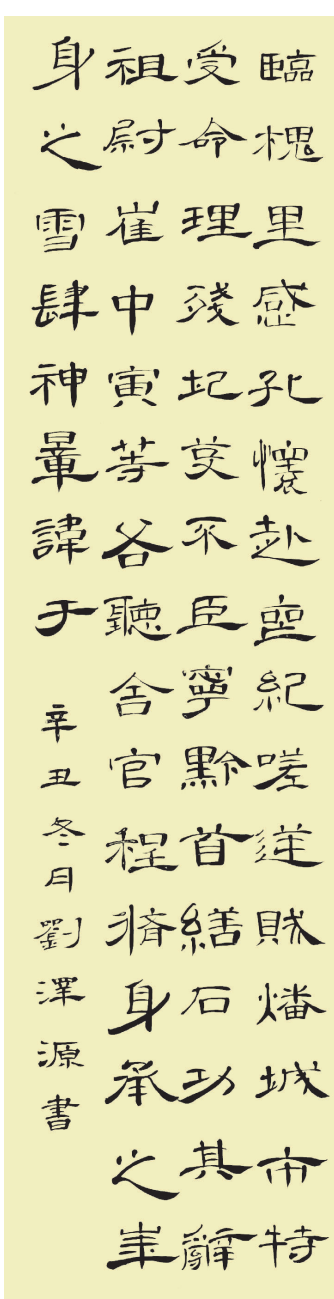 臨槐里感孔懷赴喪紀嗟逆賊燔城市特
受命理殘圮芟不臣寧黔首繕石功其辭
祖尉崔中寅等各聽舍官程身承之
身之雪肆神暈諱于
辛丑冬月劉澤源書